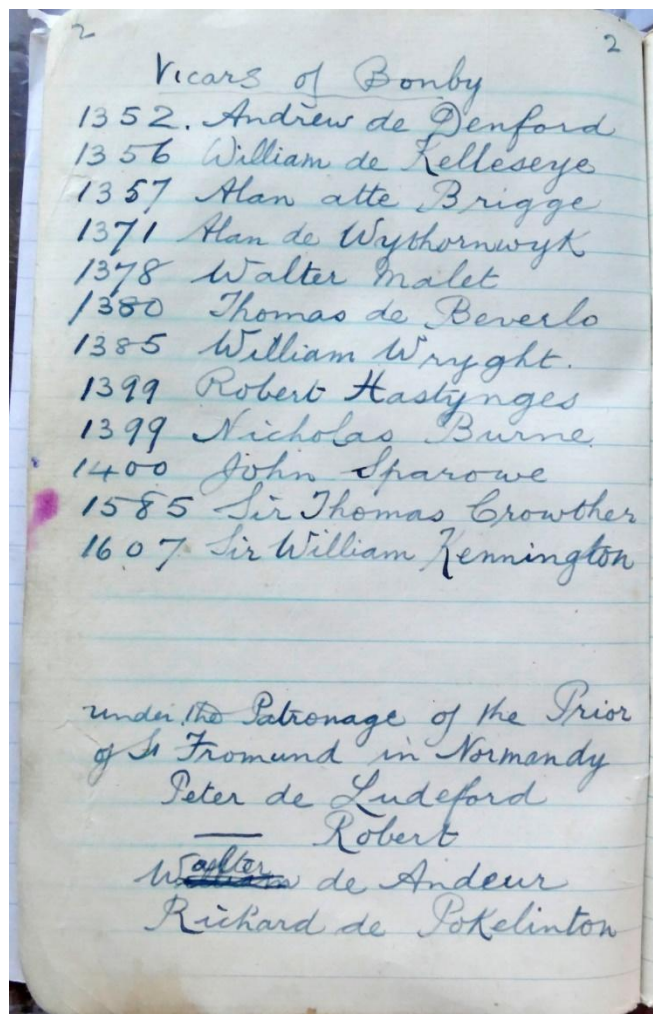 2 2
Vicars of Bonby
1352. Andrew de Denford
1356 William de Kelleseye
1357 Alan atte Brigge
1371 Alan de Wythornwyk
1378 Walter Malet
1380 Thomas de Beverlo
1385 William Wryght.
1399 Robert Hastynges
1399 Nicholas Burne
1400 John Sparowe
1585 Sir Thomas Crowther
1607 Sir William Kennington
under the Patronage of the Prior
of St Fromund in Normandy
Peter de Ludeford
— Robert
Walter de Andeur
Richard de Pokelinton